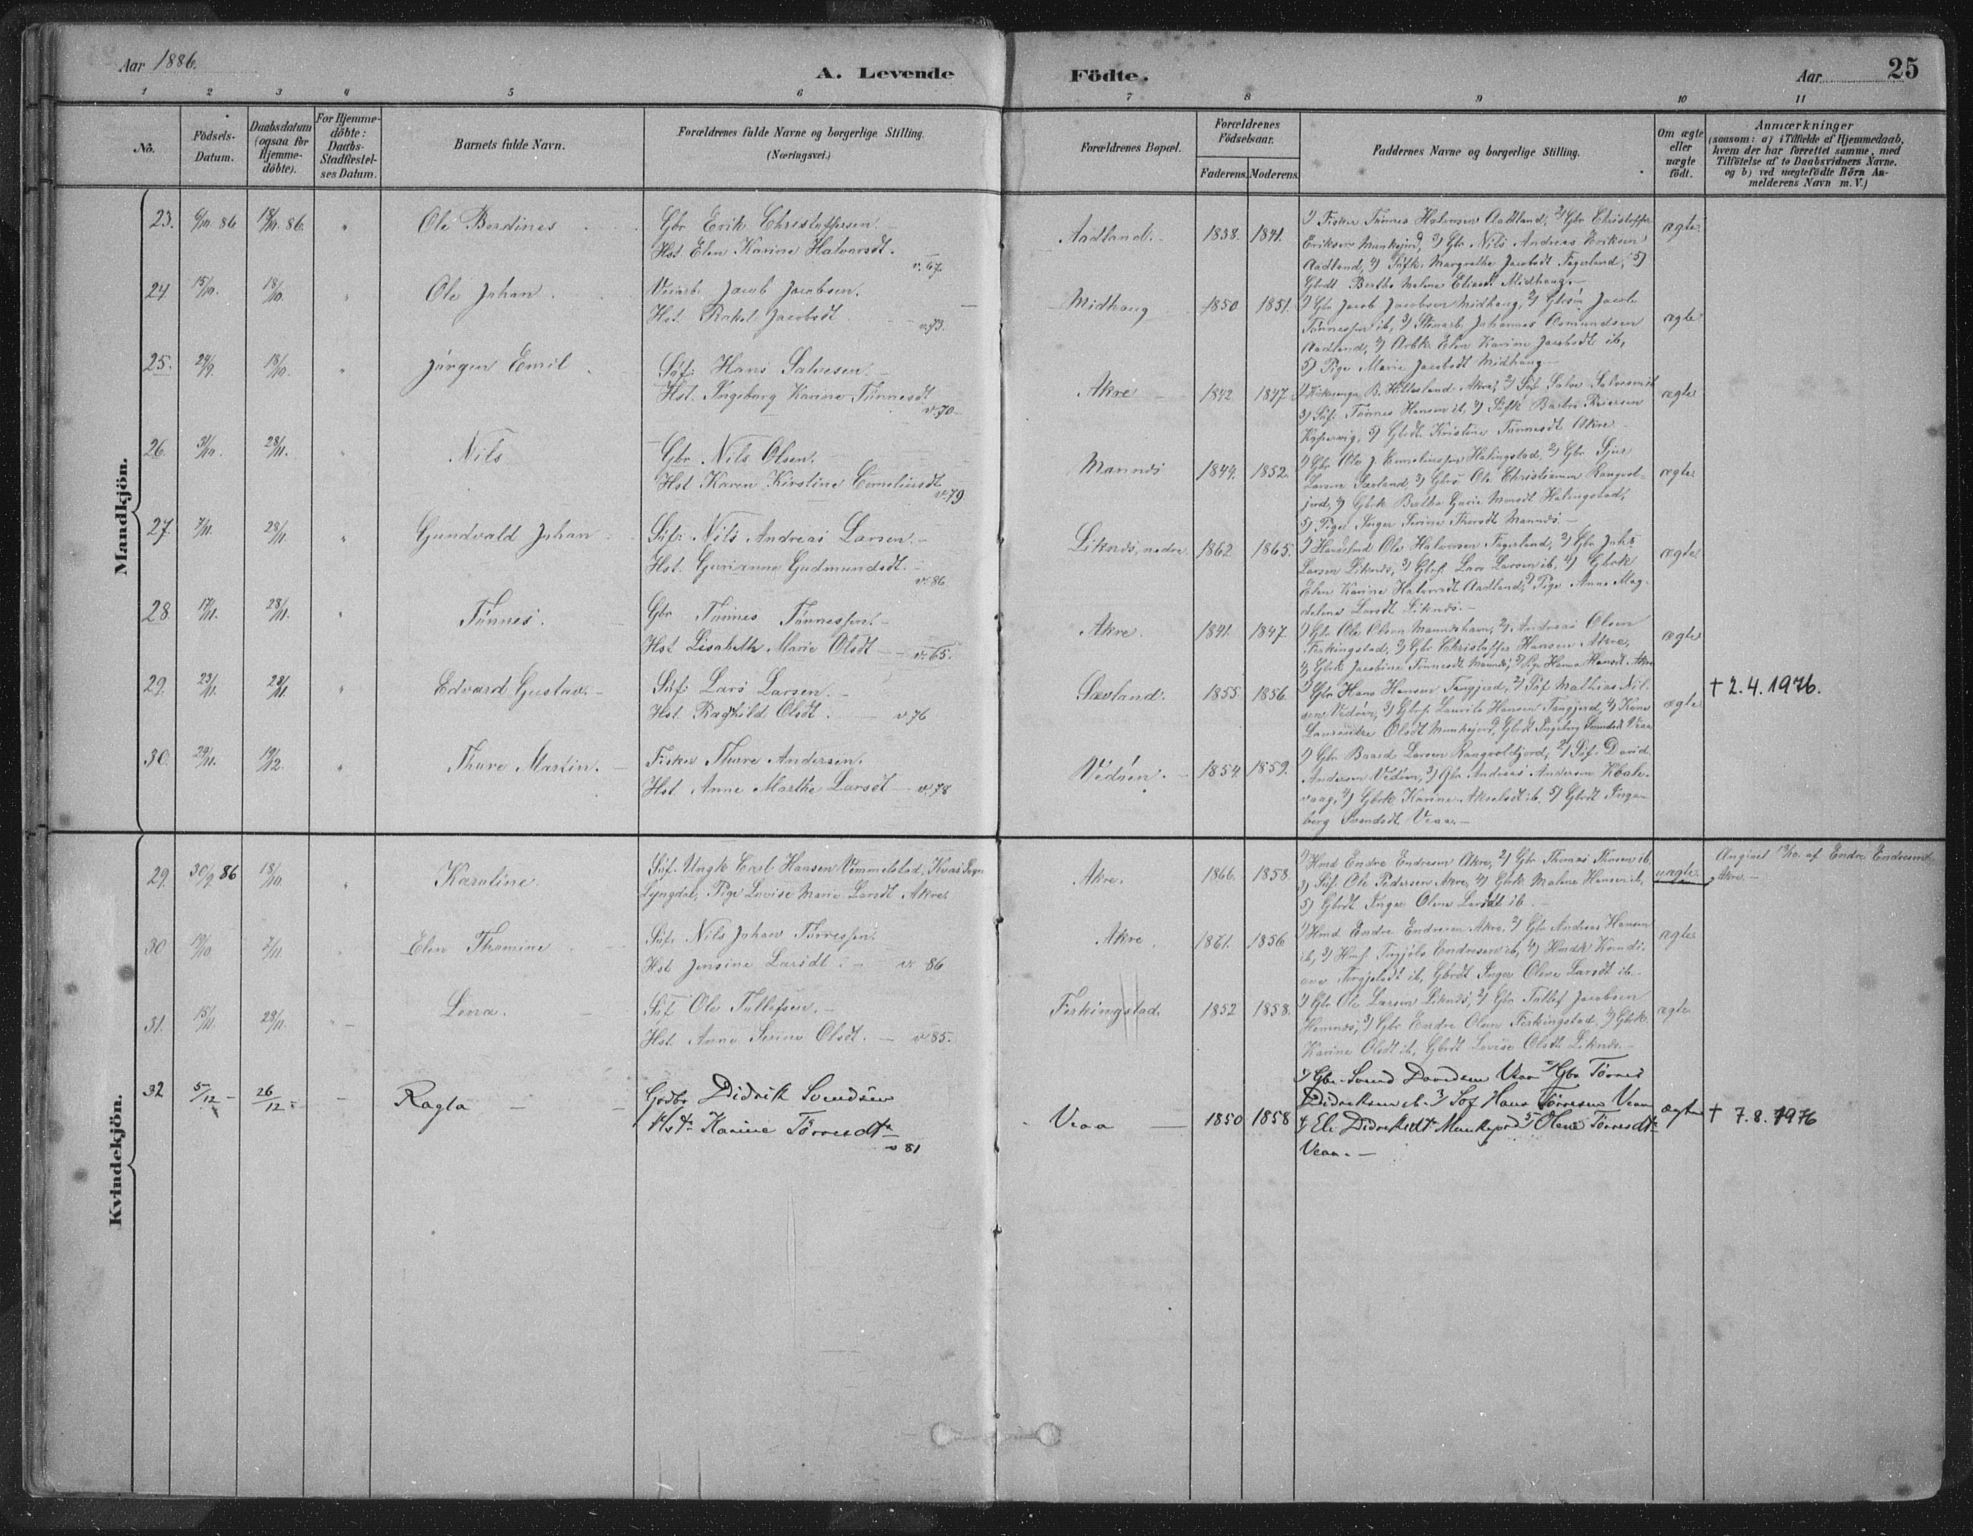 Aar 1886.
A. Levende Födte.
Aar 25
1 2 3 4 5 6 7 8 9 10 11
No.
Födsels-
Datum.
Daabsdatum
(ogsaa for
Hjemme-
döbte).
For Hjemme-
döbte:
Daabs-
Stadfæstel-
ses Datum.
Barnets fulde Navn.
Forældrenes fulde Navne og borgerlige Stilling.
(Næringsvei.)
Forældrenes Bopæl.
Forældrenes
Födselsaar.
Faderens. Moderens.
Faddernes Navne og borgerlige Stilling.
Om ægte
eller
uægte
födt.
Anmærkninger
(saasom: a) i Tilfælde af Hjemmedaab,
hvem der har forrettet samme, med
Tilföielse af to Daabsvidners Navne.
og b) ved uægtefödte Börn An-
melderens Navn m. V.)
Mandkjön.
23. 6/10 86 18/10 86. " Ole Berdines
Gbr Erik Christoffersen
Hst. Elen Karine Halvorsdt.
v. 67.
Aadland. 1838. 1841.
1) Fisker Tønnes Halvorsen Aadland, 2) Gbr Christoffer
Eriksen Munkejord, 3) Gbr. Nils Andreas Eriksen
Aadland, 4) Søfk. Margrethe Jacobsdt Fagerland, 5)
Gbdt Berthe Malene Eliasdt Midhaug.
ægte
24 15/10. 18/10. " Ole Johan.
Veiarb. Jacob Jacobsen.
Hst. Rakel Jacobsdt
v. 73.
Midhaug 1850 1851.
1) Gbr Jacob Jacobsen Midhaug, 2) Jacob
Tønnessen ib, 3) Stenarb. Johannes Asmundsen
Aadland, 4) Arbk. Elen Karine Jacobsdt ib,
5) Pige Marie Jacobsdt Midhaug
ægte
25. 24/9 18/10. " Jørgen Emil
Søf. Hans Salvesen.
Hst. Ingeborg Karine Tønnesdt
v. 70
Akre 1842 1847.
1) Kirkesanger B. Hillesland Akre, 2) Søf Salve Salvesen ib
3) Søf. Tønnes Hansen ib, 4) Søfk Barbro Reiersen
5) Gbdt. Kristine Tønnesdt Akre
ægte
26. 31/10. 28/11. " Nils
Gbr Nils Olsen.
Hst Karen Kirstine Corneliusdt
v. 79
Mannæs 1844. 1852.
1) Gbr Ole J. Corneliussen Hålingstad, 2) Gbr Sjur
Larsen Sævland 3) Ole Christiansen Rangvol-
jord, 4) Gbrk Bertha Gurie Monsdt Hålingstad,
5) Pige Inger Serine Mannæs.
ægte
27. 7/11. 28/11. " Gundvald Johan
Søf. Nils Andreas Larsen.
Hst. Gurianne Gudmundsdt.
v. 86
Liknæs, nedre. 1862 1865.
1) Ole Halvorsen Fagerland, 2) Gbr Johs
Larsen Liknæs, 3) Lars Larsen ib, 4) Gbrk
Elen Karine Halvorsdt Aadland, 5) Pige Anne Mag-
dalene Larsdt Liknæs.
ægte
28. 17/11. 28/11. " Tønnes.
Gbr Tønnes Tønnessen.
Hst Lisabeth Marie Olsdt v. 65.
Akre. 1841. 1847.
1) Gbr Ole Olsen Mannæshavn, 2) Andreas Olsen
Ferkingstad, 3) Gbr Christoffer Hansen Akre,
4) Gbrk Jacobine Tønnesdt Mannæs, 5) Pige Hansdt Akre
ægte
29. 23/11. 28/11. " Edvard Gustav.
Søf. Lars Larsen.
Hst. Raghild Olsdt. v. 76
Sævland. 1855 1856.
1) Gbr Hans Hansen Tangjerd, 2) Søf Mathias Nil-
sen Vedøen, 3) Laurits Hansen Tangjerd, 4)
Olsdt Munkejord, Gbrdt Ingeborg Svendsdt Veaa
ægte
† 2.4.1976.
30. 29/11. 19/12. " Thure Martin.
Fisker Thure Andersen.
Hst. Anne Marthe Larsdt v. 78
Vedøen. 1854 1859.
1) Gbr Baard Larsen Rangvoldjord, 2) Søf. David
Andersen Vedøen, 3) Gbr Andreas Andersen Kval-
vaag, 4) Gbrk Karine Akselsdt ib, 5) Gbrdt Inge-
borg Svendsdt Veaa.
Kvindekjön.
29. 30/9 86 18/10. " Karoline
Søf. Ungk Carl Hansen Vemmelstad, Kvas Sogn
Lyngdal, Pige Lovise Marie Larsdt Akre
Akre. 1866. 1858.
1) Hmd Endre Endresen Akre, 2) Gbr Thomas ib.
3) Søf. Ole Pedersen Akre, 4) Gbrk Malene Hansen ib,
5) Gbrdt Inger Olene Larsdt ib.
uægte
Angivet 12/10. af Endre Endresen
Akre.
30 19/10. 7/11. Elen Thomine
Søf. Nils Johan Tørressen.
Hst Jensine Larsdt. v. 86
Akre. 1861. 1856
1) Hmd Endre Endresen Akre, 2) Gbr Andreas Hansen
ib, 3) Endresen ib, 4)
ib, Gbrdt Inger Olene Larsdt ib.
ægte
31. 15/11. 28/11. Lina.
Søf Ole Tollefsen.
Hst. Anne Serine Olsdt. v. 85.
Ferkingstad. 1852 1858.
1) Gbr. Ole Larsen Liknæs, 2) Gbr Tollef Jacobsen
Hemnæs, 3) Gbr Endre Olsen Ferkingstad 4) Gbrk.
Karine Olsdt ib, Gbrdt Lovise Olsdt Liknæs.
ægte
32 5/12 26/12 Ragla
Grdbr Didrik Svendsen
Hst. Karine Tørresdt
v 81
Veaa 1850 1858
1) Gbr. Svend Davidsen Veaa 2) Gbr Tørres
Didriksen ib. 3) Søf Hans Tørresen Veaa
4) Eli Didriksdt Munkejord 5) Olene Tørresdt
Veaa.
ægte
† 7.8.1976